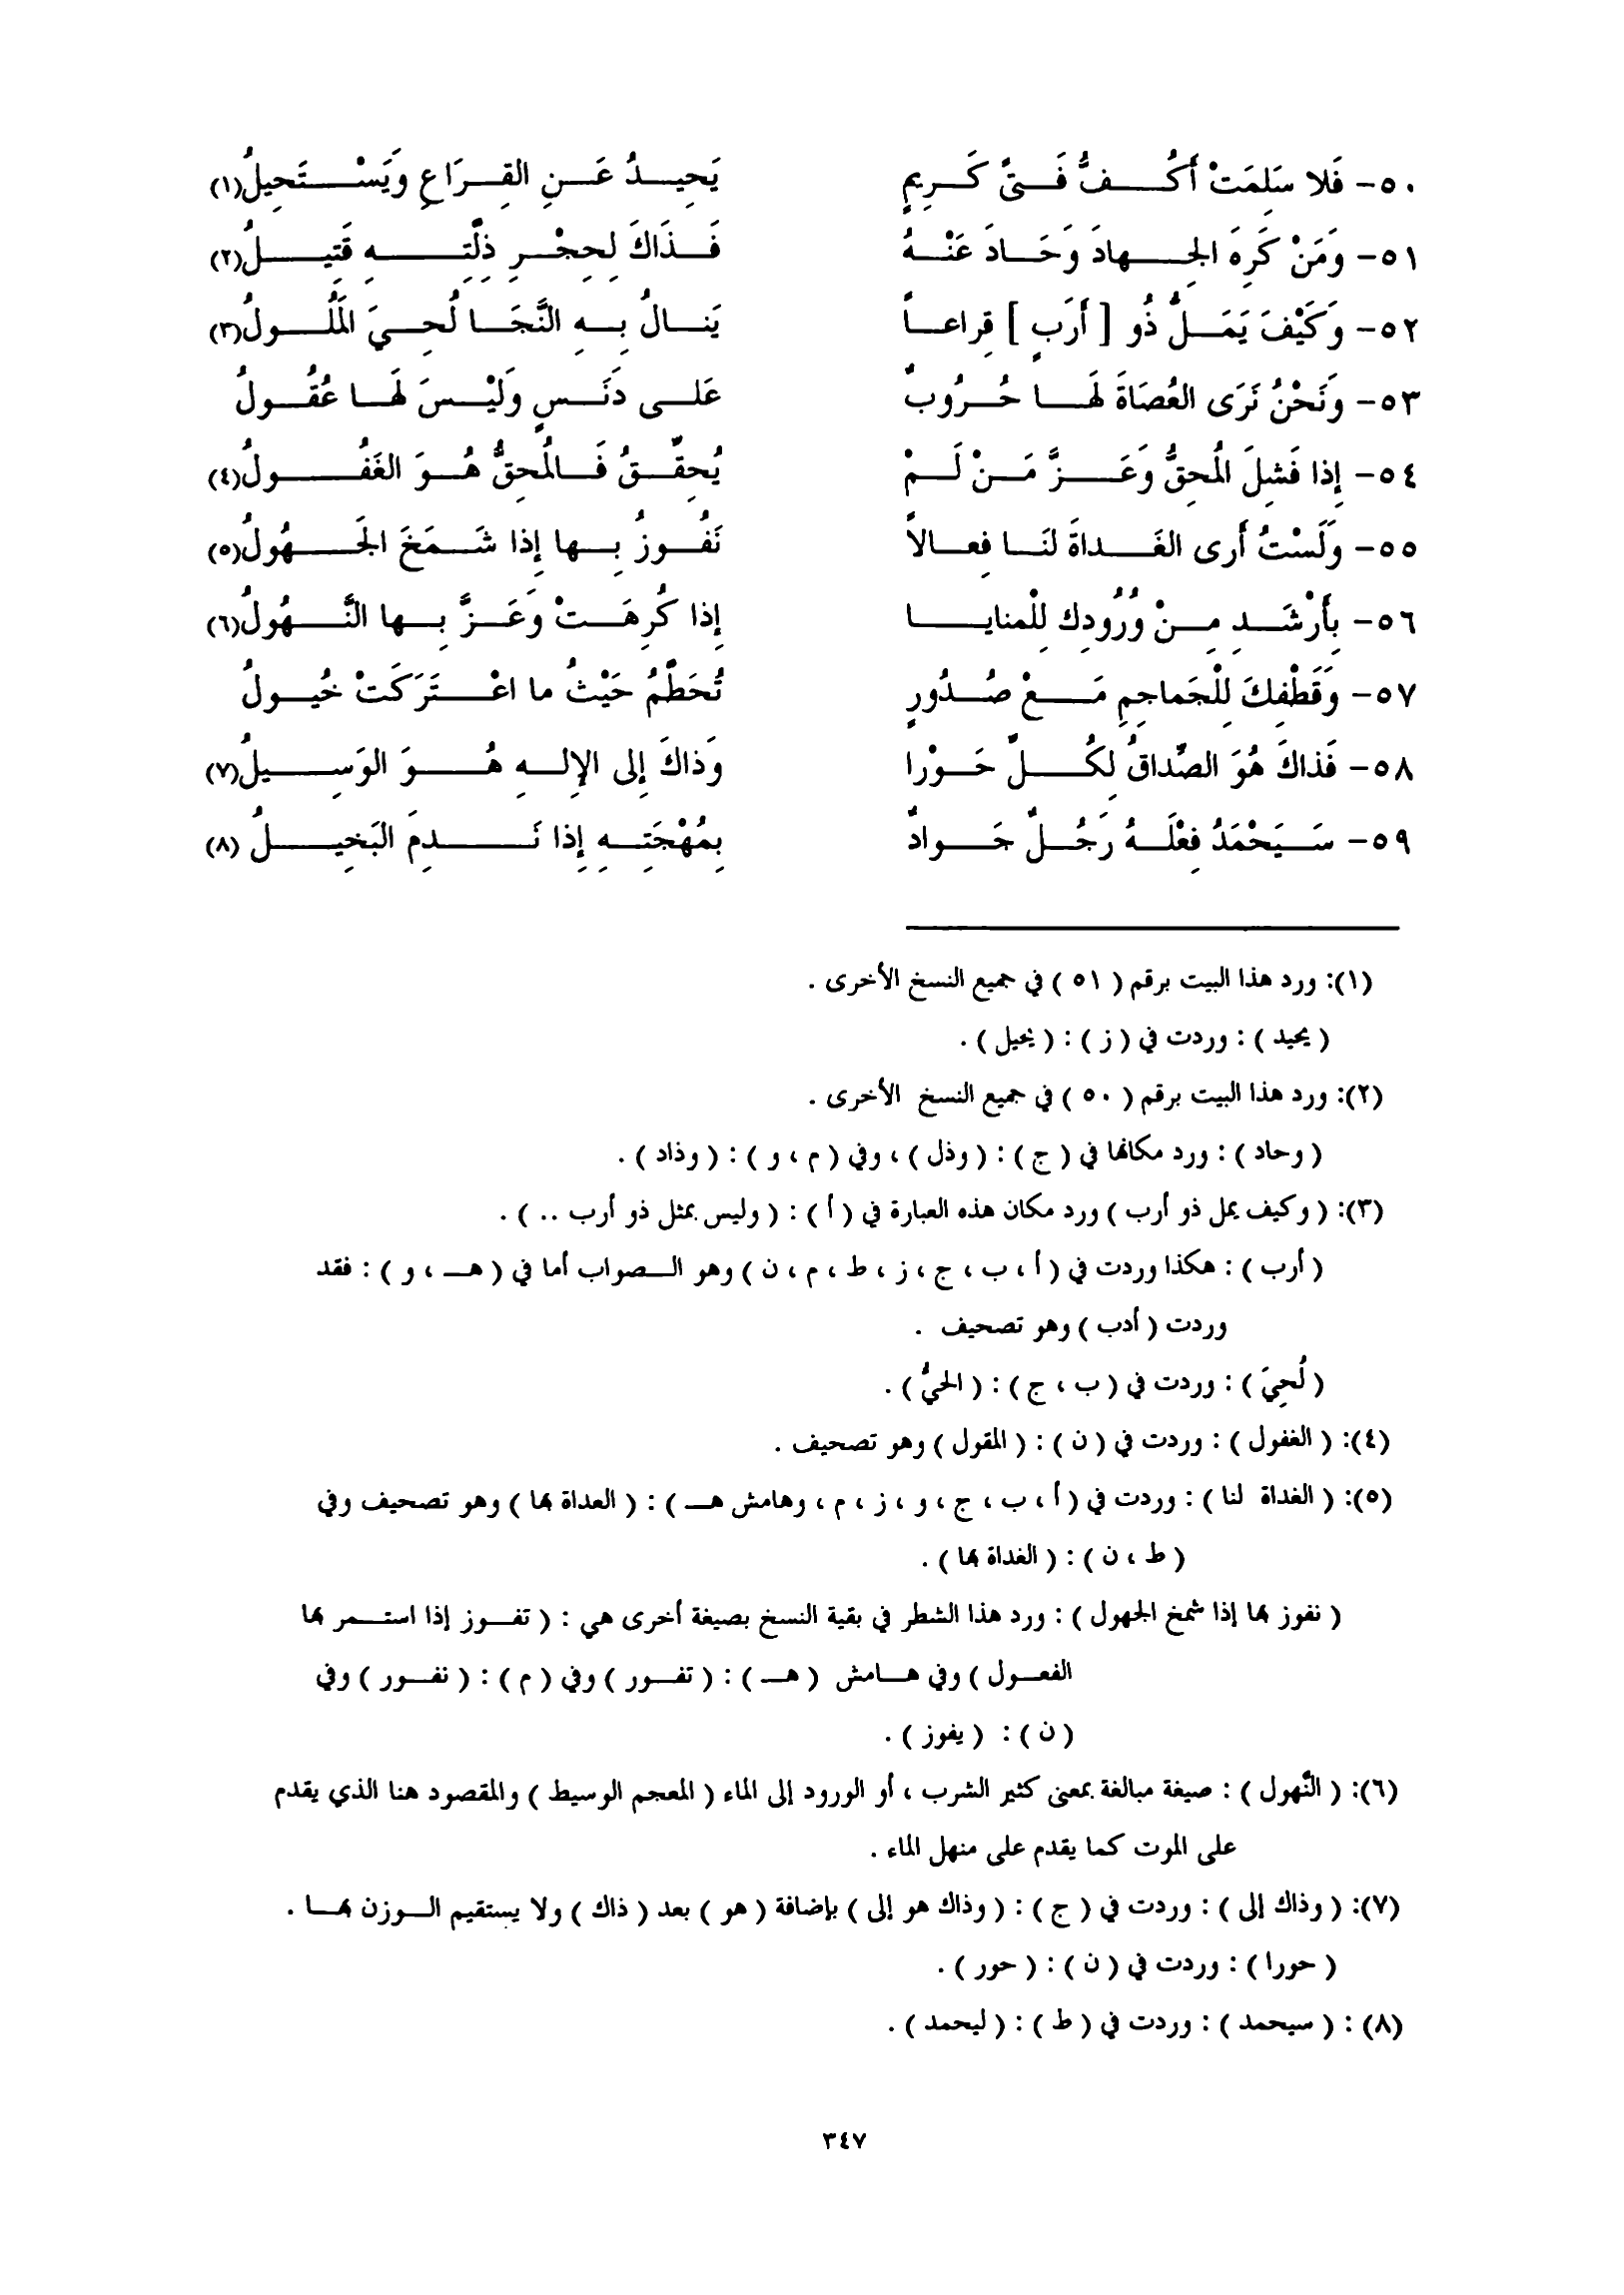 ٥٠- فَلا سَلِمَتْ أَكُفُّ فَتًى كَرِيمٍ يَحِيدُ عَنِ القِرَاعِ وَيَسْتَحِيلُ(١)
٥١- وَمَنْ كَرِهَ الجِهادَ وَحَادَ عَنْهُ فَذَاكَ لِحِجْرِ ذِلَّتِهِ قَتِيلُ(٢)
٥٢- وَكَيْفَ يَمَلُّ ذُو [ أَرَبٍ ] قِراعاً يَنالُ بِهِ النَّجَا لُحِيَ المَلُولُ(٣)
٥٣- وَنَحْنُ نَرَى العُصَاةَ لَها حُرُوبٌ عَلى دَنَسٍ وَلَيْسَ لَها عُقُولُ
٥٤- إِذا فَشِلَ المُحِقُّ وَعَزَّ مَنْ لَمْ يُحِقَّقُ فَالمُحِقُّ هُوَ الغَفُولُ(٤)
٥٥- وَلَسْتُ أَرى الغَداةَ لَنَا فِعالاً نَفُوزُ بِها إِذا شَمَخَ الجَهُولُ(٥)
٥٦- بِأَرْشَدِ مِنْ وُرُودِكِ لِلْمنايا إِذا كُرِهَتْ وَعَزَّ بِها النَّهُولُ(٦)
٥٧- وَقَطْفِكَ لِلْجَماجِمِ مَعْ صُدُورٍ تُحَطَّمُ حَيْثُ ما اعْتَرَكَتْ خُيولُ
٥٨- فَذاكَ هُوَ الصَّداقُ لِكُلِّ حَوْرا وَذاكَ إِلى الإِلهِ هُوَ الوَسِيلُ(٧)
٥٩- سَيَحْمَدُ فِعْلَهُ رَجُلٌ جَوادٌ بِمُهْجَتِهِ إِذا نَدِمَ البَخِيلُ (٨)
(١): ورد هذا البيت برقم ( ٥١ ) في جميع النسخ الأخرى .
( يحيد ) : وردت في ( ز ) : ( يحيل ) .
(٢): ورد هذا البيت برقم ( ٥٠ ) في جميع النسخ الأخرى .
( وحاد ) : ورد مكانها في ( ج ) : ( وذل ) ، وفي ( م ، و ) : ( وذاد ) .
(٣): ( وكيف يمل ذو أرب ) ورد مكان هذه العبارة في ( أ ) : ( وليس بمثل ذو أرب .. ) .
( أرب ) : هكذا وردت في ( أ ، ب ، ج ، ز ، ط ، م ، ن ) وهو الصواب أما في ( هـ ، و ) : فقد
وردت ( أدب ) وهو تصحيف .
( لُحِيَ ) : وردت في ( ب ، ج ) : ( الحيُّ ) .
(٤): ( الغفول ) : وردت في ( ن ) : ( المقول ) وهو تصحيف .
(٥): ( الغداة لنا ) : وردت في ( أ ، ب ، ج ، و ، ز ، م ، وهامش هـ ) : ( العداة بها ) وهو تصحيف وفي
( ط ، ن ) : ( الغداة بها ) .
( نفوز بها إذا شمخ الجهول ) : ورد هذا الشطر في بقية النسخ بصيغة أخرى هي : ( تفوز إذا استمر بها
الفعول ) وفي هامش ( هـ ) : ( تفور ) وفي ( م ) : ( نفور ) وفي
( ن ) : ( يفوز ) .
(٦): ( النَّهول ) : صيغة مبالغة بمعنى كثير الشرب ، أو الورود إلى الماء ( المعجم الوسيط ) والمقصود هنا الذي يقدم
على الموت كما يقدم على منهل الماء .
(٧): ( وذاك إلى ) : وردت في ( ج ) : ( وذاك هو إلى ) بإضافة ( هو ) بعد ( ذاك ) ولا يستقيم الوزن بها .
( حورا ) : وردت في ( ن ) : ( حور ) .
(٨) : ( سيحمد ) : وردت في ( ط ) : ( ليحمد ) .
٣٤٧